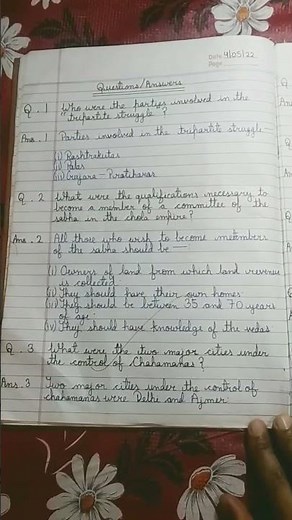 Date 4/05/22
Page
Questions/Answers
Q. 1 Who were the parties involved in the
"tripartite struggle"?
Ans. 1 Parties involved in the tripartite struggle—
(i) Rashtrakutas
(ii) Palas
(iii) Gurjara - Pratiharas
Q. 2 What were the qualifications necessary to
become a member of a committee of the
sabha in the chola empire?
Ans. 2 All those who wish to become members
of the sabha should be —
(i) Owners of land from which land revenue
is collected
(ii) They should have their own homes
(iii) They should be between 35 and 70 years
of age
(iv) They should have knowledge of the vedas
Q. 3 What were the two major cities under
the control of Chahamanas?
Ans. 3 Two major cities under the control of
chahamanas were Delhi and Ajmer